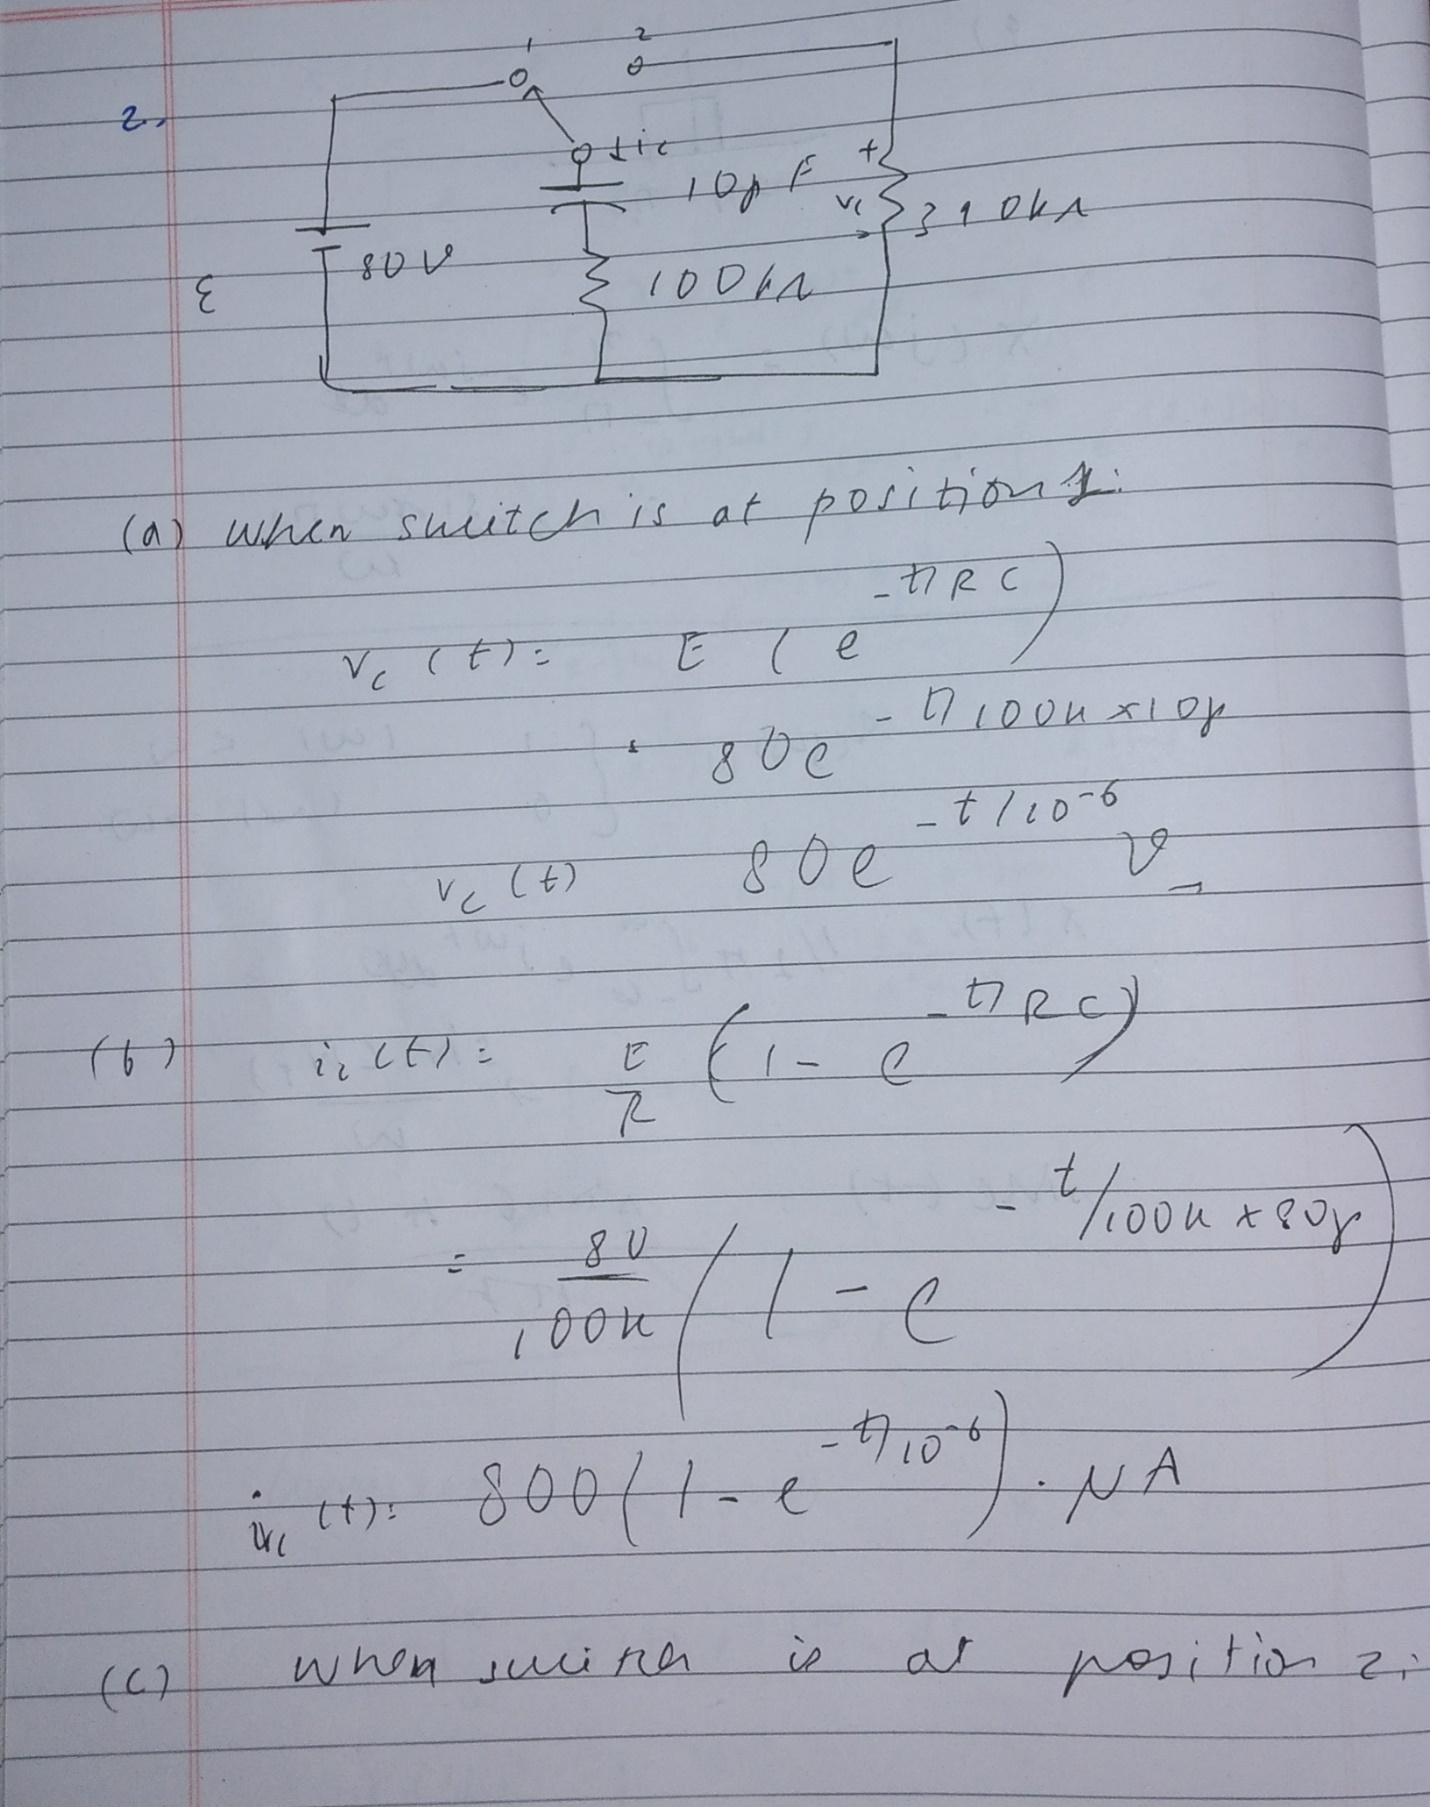 1 2
2.
+ic
10µF
+
vc
390kΩ
80V
100kΩ
ε
(a) when switch is at position 1:
vc (t) = E ( e^-t/RC )
= 80e^-t/100k×10µ
vc (t) 80e^-t/10^-6 V
(b) ic (t) = E/R ( 1 - e^-t/RC )
= 80/100k ( 1 - e^-t/100k×80µ )
ic (t) = 800 ( 1 - e^-t/10^-6 ) . µA
(c) when switch is at position 2: